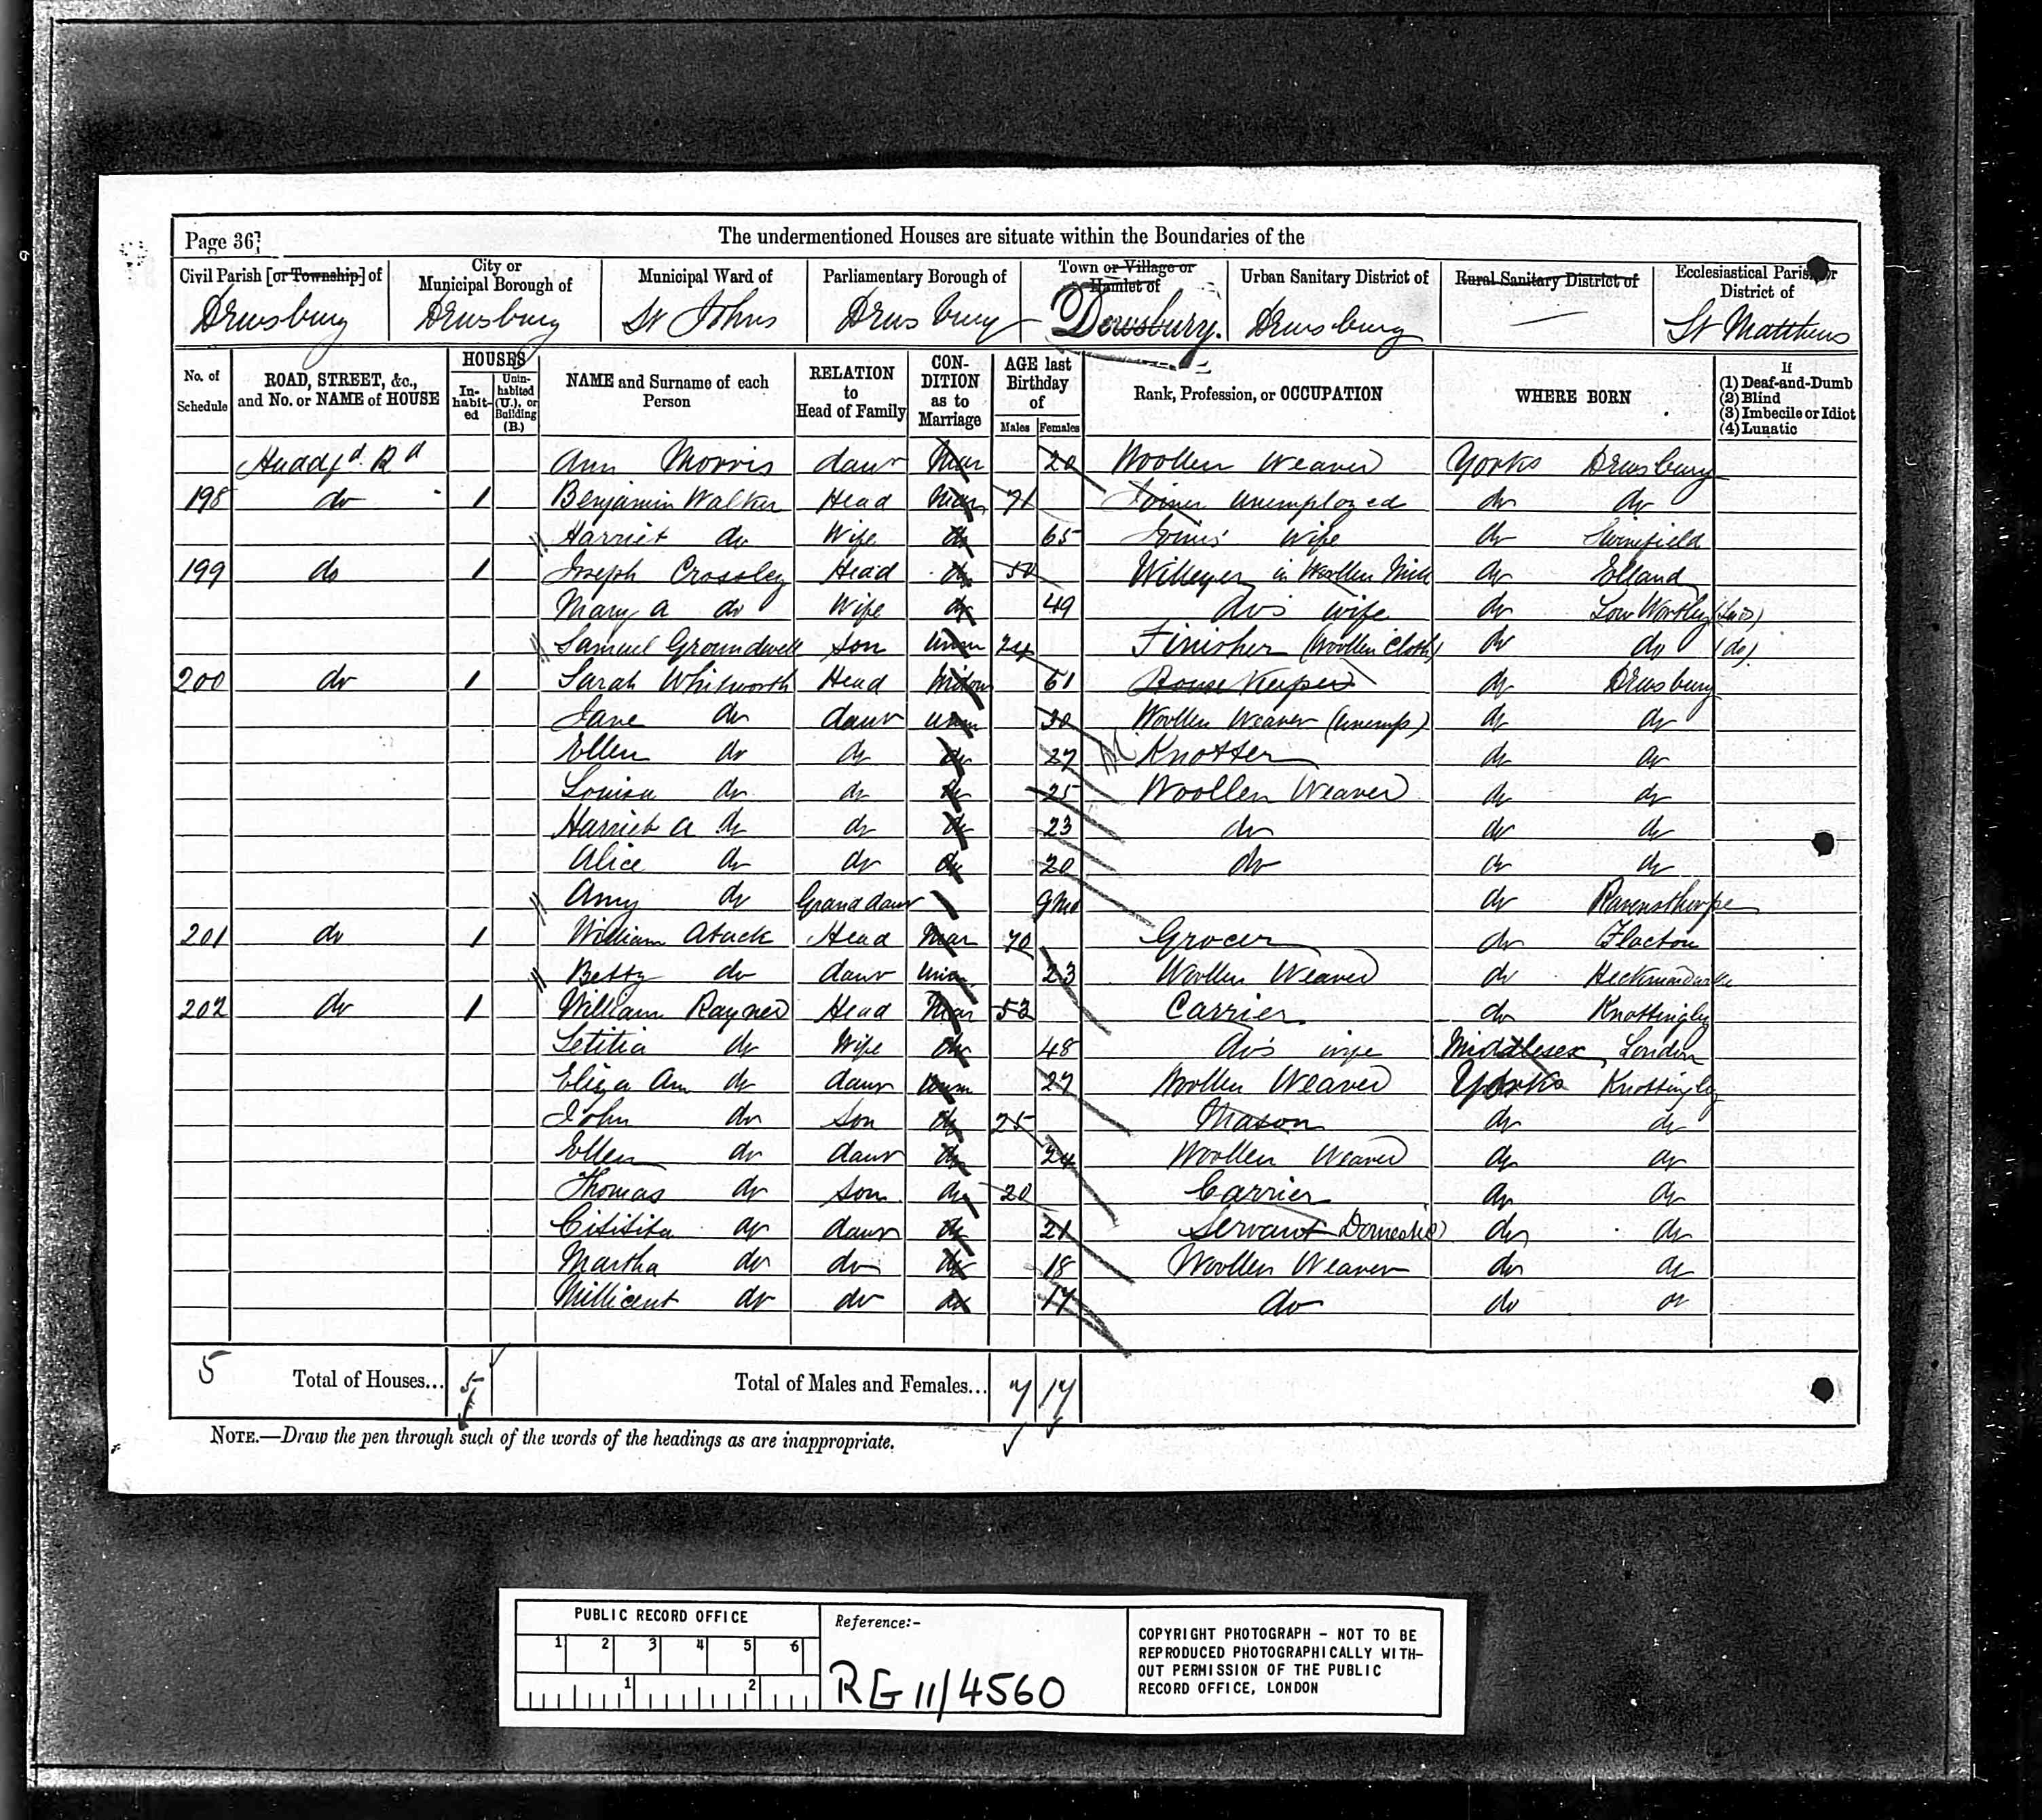 Page 36]
The undermentioned Houses are situate within the Boundaries of the
Civil Parish [or Township] of
City or Municipal Borough of
Municipal Ward of
Parliamentary Borough of
Town or Village or Hamlet of
Urban Sanitary District of
Rural Sanitary District of
Ecclesiastical Parish or District of
Dewsbury Dewsbury St Johns Dewsbury Dewsbury. Dewsbury — St Matthews
No. of Schedule
ROAD, STREET, &c., and No. or NAME of HOUSE
HOUSES
In-habit-ed
Unin-habited (U.), or Building (B.)
NAME and Surname of each Person
RELATION to Head of Family
CON-DITION as to Marriage
AGE last Birthday of
Males Females
Rank, Profession, or OCCUPATION
WHERE BORN
If
(1) Deaf-and-Dumb
(2) Blind
(3) Imbecile or Idiot
(4) Lunatic
Huddfd. Rd Ann Morris daur Mar 20 Woollen Weaver Yorks Dewsbury
198 do 1 Benjamin Walker Head Mar 71 Joiner unemployed do do
Harriet do Wife do 65 wife do
199 do 1 Joseph Crossley Head do 50 Willeyer in Woollen Mill do Elland
Mary A do Wife do 49 do's wife do Low Wortley
Samuel Groundwell son unm 24 Finisher (Woollen Cloth) do do (do)
200 do 1 Sarah Whitworth Head Widow 61 House Keeper do Dewsbury
Jane do daur unm 30 Woollen Weaver (unemp) do do
Ellen do do do 27 Knotter do do
Louisa do do do 25 Woollen Weaver do do
Harriet A do do do 23 do do do
Alice do do do 20 do do do
Amy do Grand daur 9 mo do Ravensthorpe
201 do 1 William Aback Head Mar 70 Grocer do Flacton
Betty do daur unm 23 Woollen Weaver do Heckmondwike
202 do 1 William Rayner Head Mar 53 Carrier do Knottingley
Letitia do Wife do 48 do's wife Middlesex London
Eliza Ann do daur unm 27 Woollen Weaver Yorks Knottingley
John do son do 25 Mason do do
Ellen do daur do 24 Woollen Weaver do do
Thomas do son do 20 Carrier do do
do daur do 21 Servant Domestic) do do
Martha do do do 18 Woollen Weaver do do
Millicent do do do 17 do do do
5 Total of Houses... 5 Total of Males and Females... 7 17
NOTE.—Draw the pen through such of the words of the headings as are inappropriate.
PUBLIC RECORD OFFICE
1 2 3 4 5 6
1 2
Reference:-
RG 11/4560
COPYRIGHT PHOTOGRAPH - NOT TO BE
REPRODUCED PHOTOGRAPHICALLY WITH-
OUT PERMISSION OF THE PUBLIC
RECORD OFFICE, LONDON